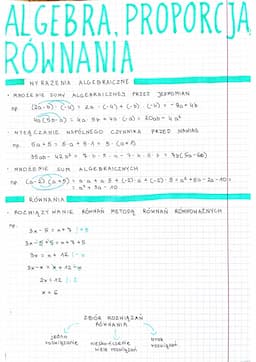 ALGEBRA, PROPORCJA,
RÓWNANIA
WYRAŻENIA ALGEBRAICZNE
• MNOŻENIE SUMY ALGEBRAICZNEJ PRZEZ JEDNOMIAN
np.
4a(5b-a) = 4a·5b + 4a·(-a) = 20ab - 4a²
• WYŁĄCZANIE WSPÓLNEGO CZYNNIKA PRZED NAWIAS
np. 5a+5 = 5·a + 5·1 = 5·(a+1)
• MNOŻENIE SUM ALGEBRAICZNYCH
np. (a-2)(a+5) = a·a + a·5 + (-2)·a + (-2)·5 = a²+5a-2a-10 =
= a²+3a-10
RÓWNANIA
• ROZWIĄZYWANIE RÓWNAŃ METODĄ RÓWNAŃ RÓWNOWAŻNYCH
np.
3x-5 = x+7 |+5
3x-5+5 = x+7+5
3x = x+12 |-x
3x-x = x+12-x
2x = 12 |:2
x = 6
ZBIÓR ROZWIĄZAŃ
RÓWNANIA
jedno
rozwiązanie
nieskończenie
wiele rozwiązań
brak
rozwiązań